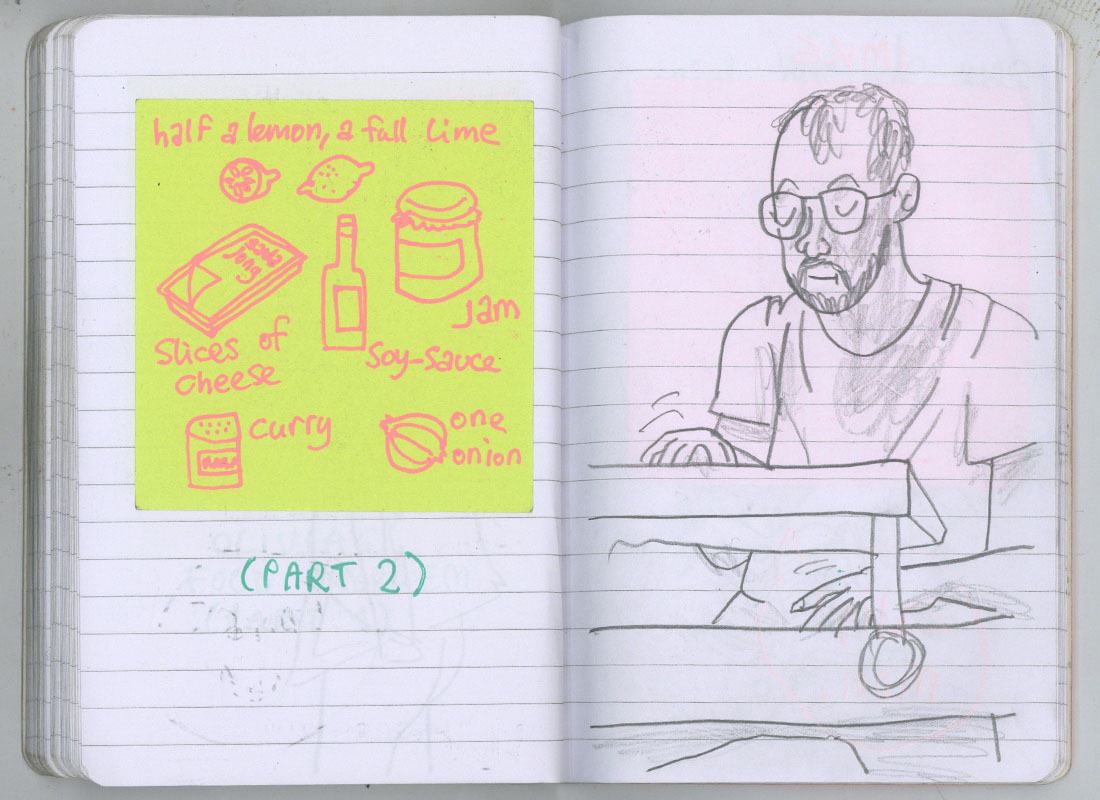 half a lemon, a full lime
Jong
Jam
Slices of
cheese
Soy-sauce
curry
one
onion
(PART 2)